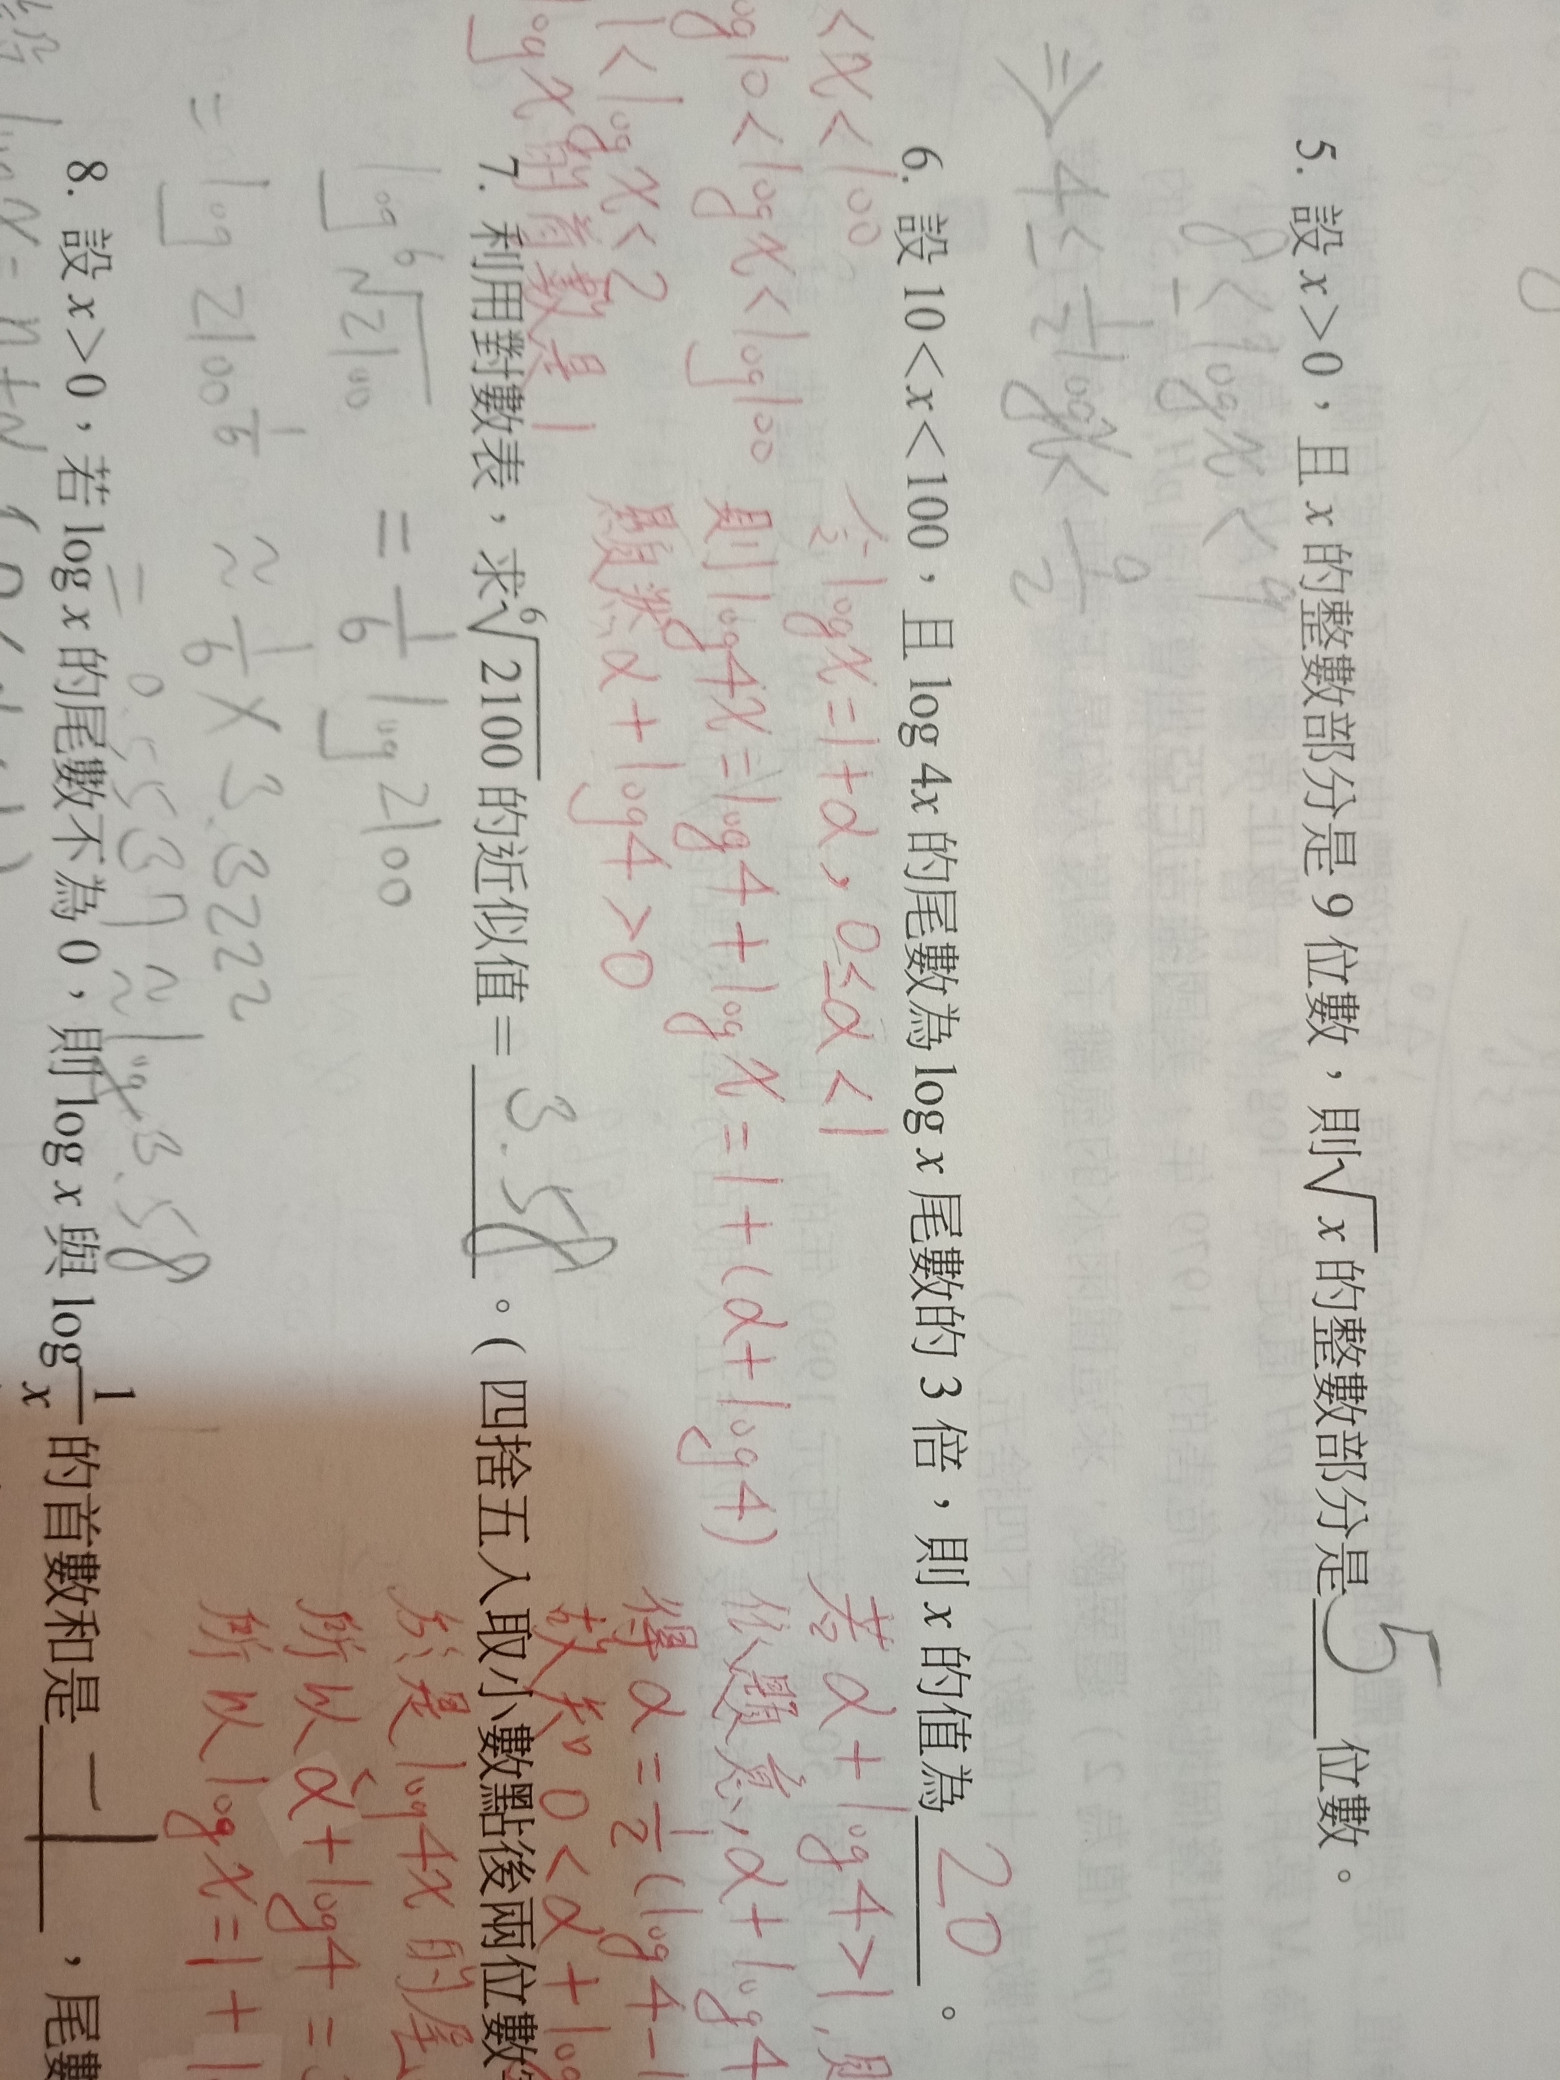 5. 設 x>0,且 x 的整數部分是 9 位數,則√x 的整數部分是 5 位數。
8 ≤ log x < 9
⇒ 4 ≤ 1/2 log x < 9/2
6. 設 10<x<100,且 log 4x 的尾數為 log x 尾數的 3 倍,則 x 的值為 20 。
<x<100
og10<logx<log100
1<logx<2
logx的首數是1
令logx=1+α,0≤α<1
則log4x=log4+logx=1+(α+log4)
顯然α+log4>0
若α+log4>1,則
依題意,α+log4
得α=1/2(log4-1
故知0<α+log
於是log4x的尾
所以α+log4=
所以logx=1+
7. 利用對數表,求 ⁶√2100 的近似值= 3.58 。(四捨五入取小數點後兩位數
log ⁶√2100 = 1/6 log 2100
= log 2100^1/6 ≈ 1/6 × 3.3222
= 0.5537 ≈ log 3.58
8. 設 x>0,若 log x 的尾數不為 0,則 log x 與 log 1/x 的首數和是 -1 ,尾數
logx=n+α